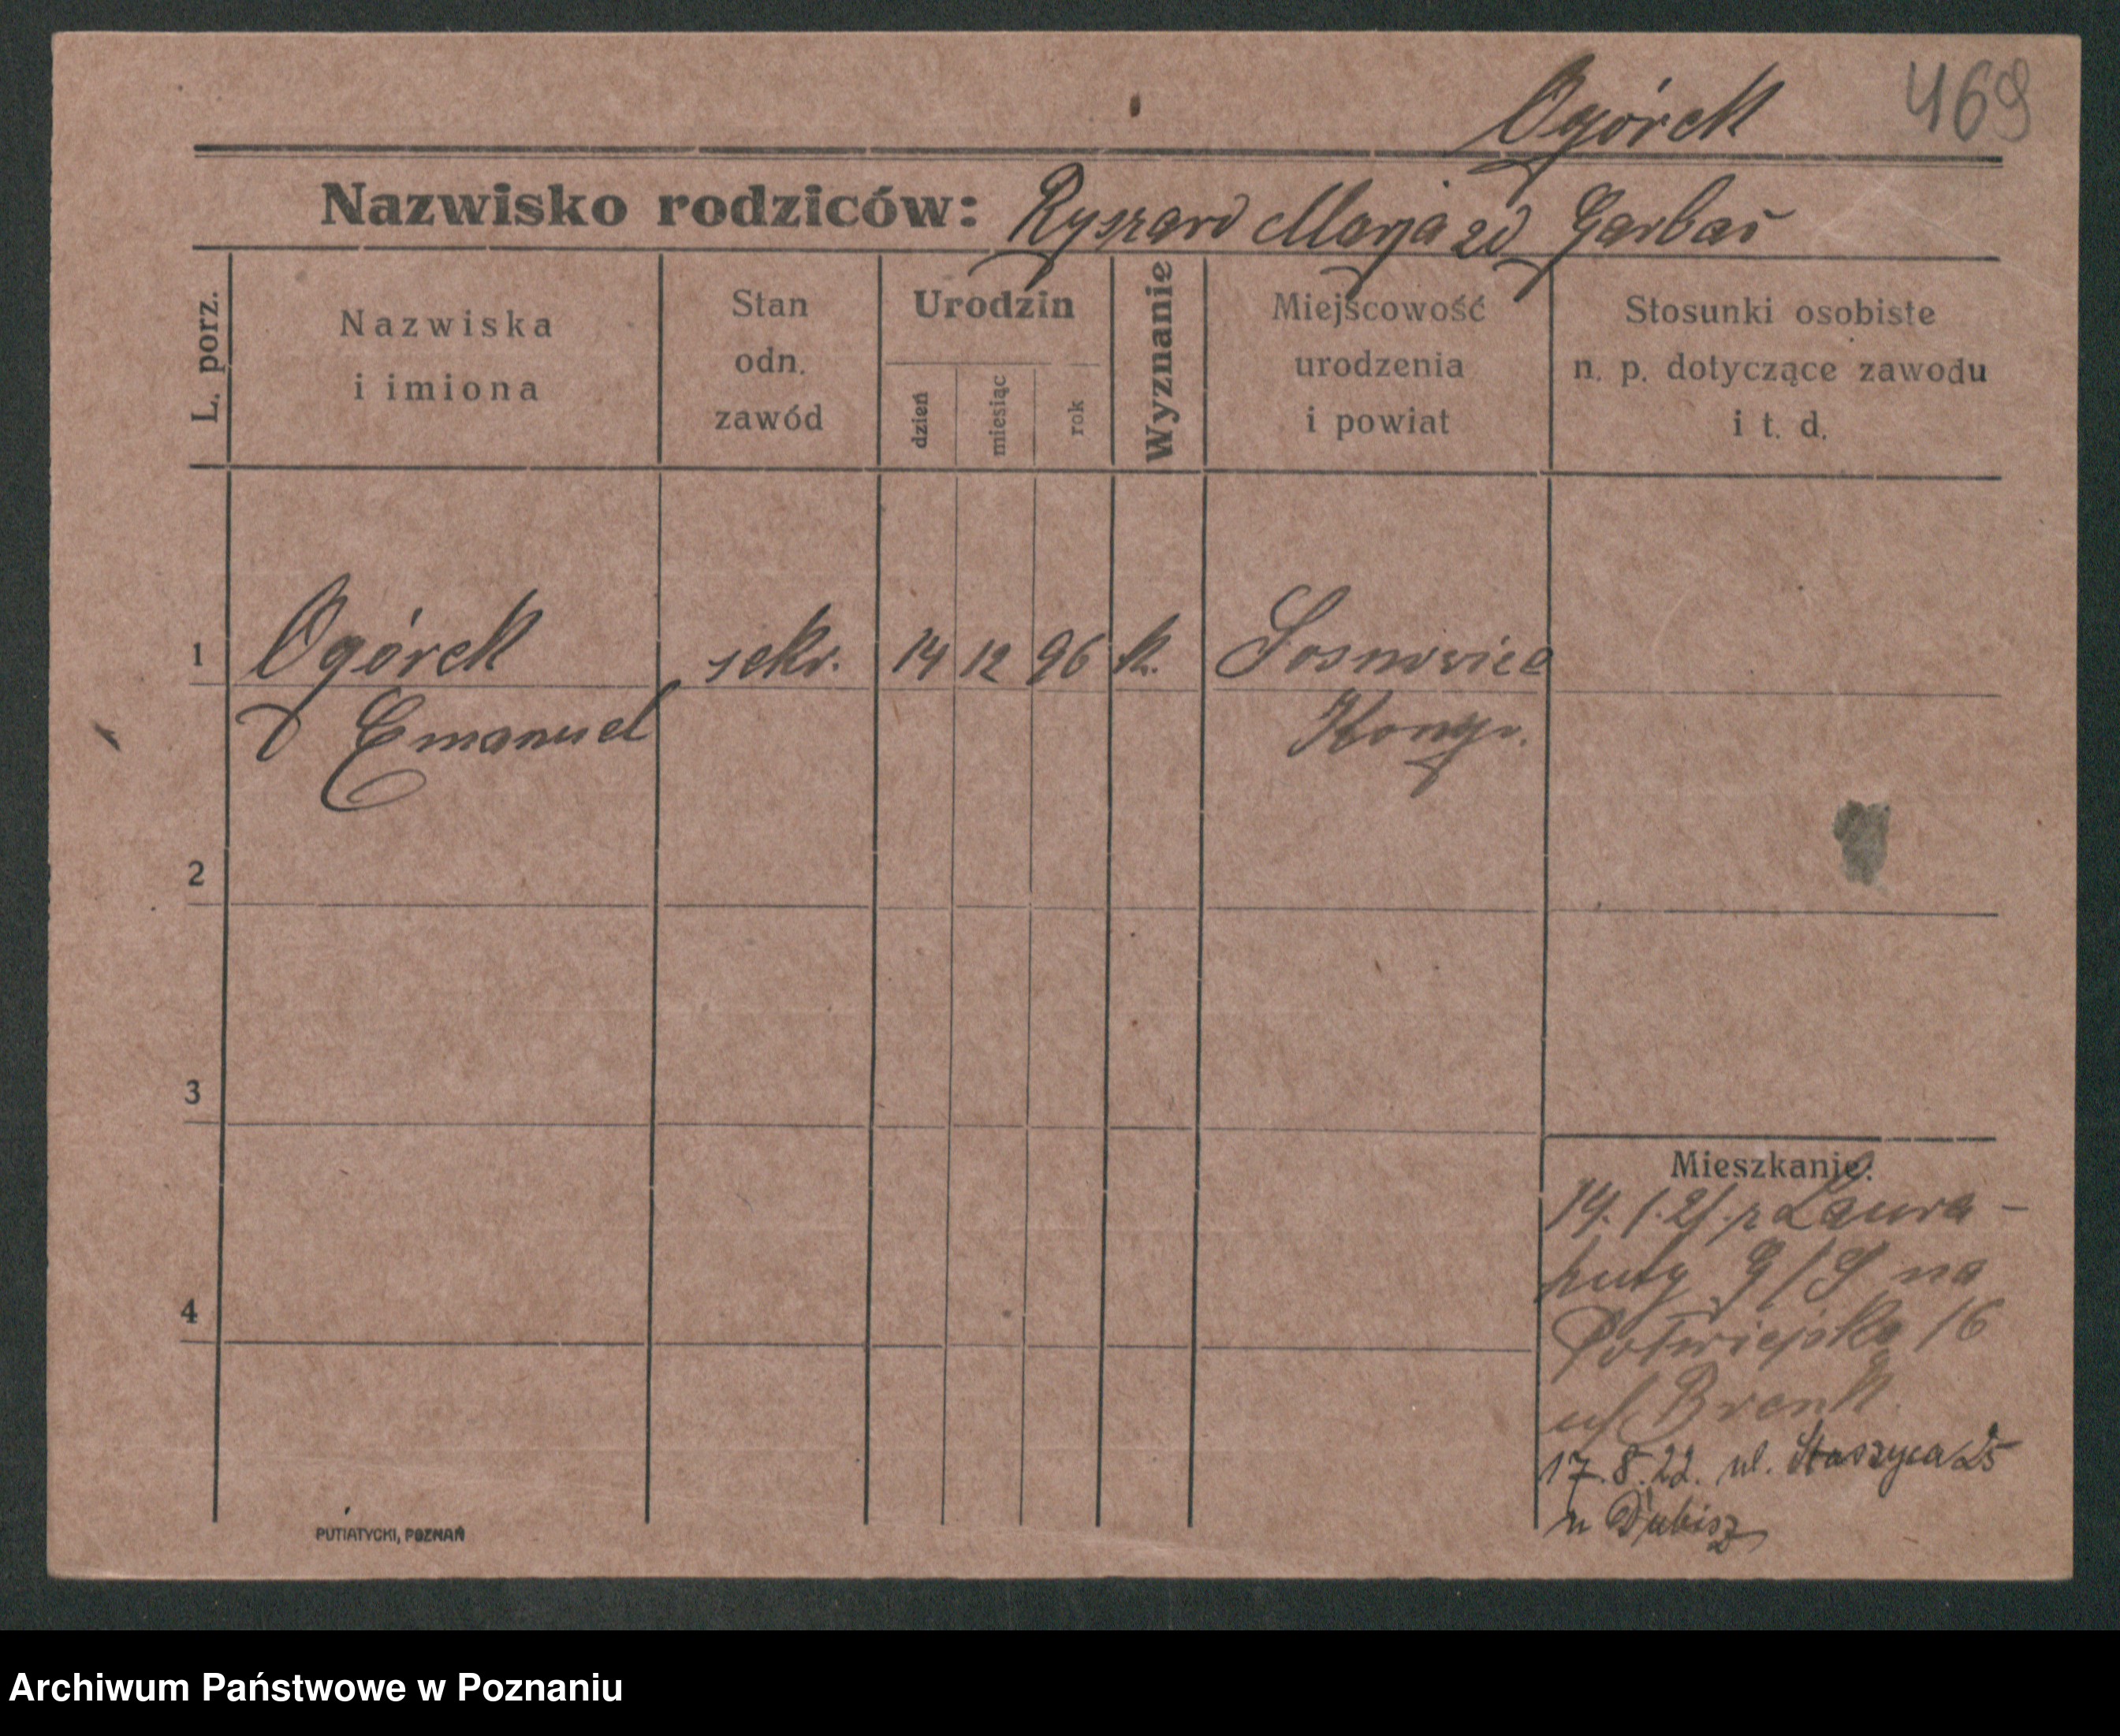 Ogórek 469
Nazwisko rodziców: Ryszard Marja zd Garbas
L. porz.
Nazwiska
i imiona
Stan
odn.
zawód
Urodzin
dzień
miesiąc
rok
Wyznanie
Miejscowość
urodzenia
i powiat
Stosunki osobiste
n. p. dotyczące zawodu
i t. d.
1 Ogórek sekr. 14 12 96 k. Sosnowice
Emanuel Kongr.
2
3
4
Mieszkanie:
14. 1. 21. z Laura-
huty G/S na
Półwiejska 16
u/ Brenk
17. 8. 22. ul. Staszyca 25
u Dubisz
PUTIATYCKI, POZNAŃ
Archiwum Państwowe w Poznaniu